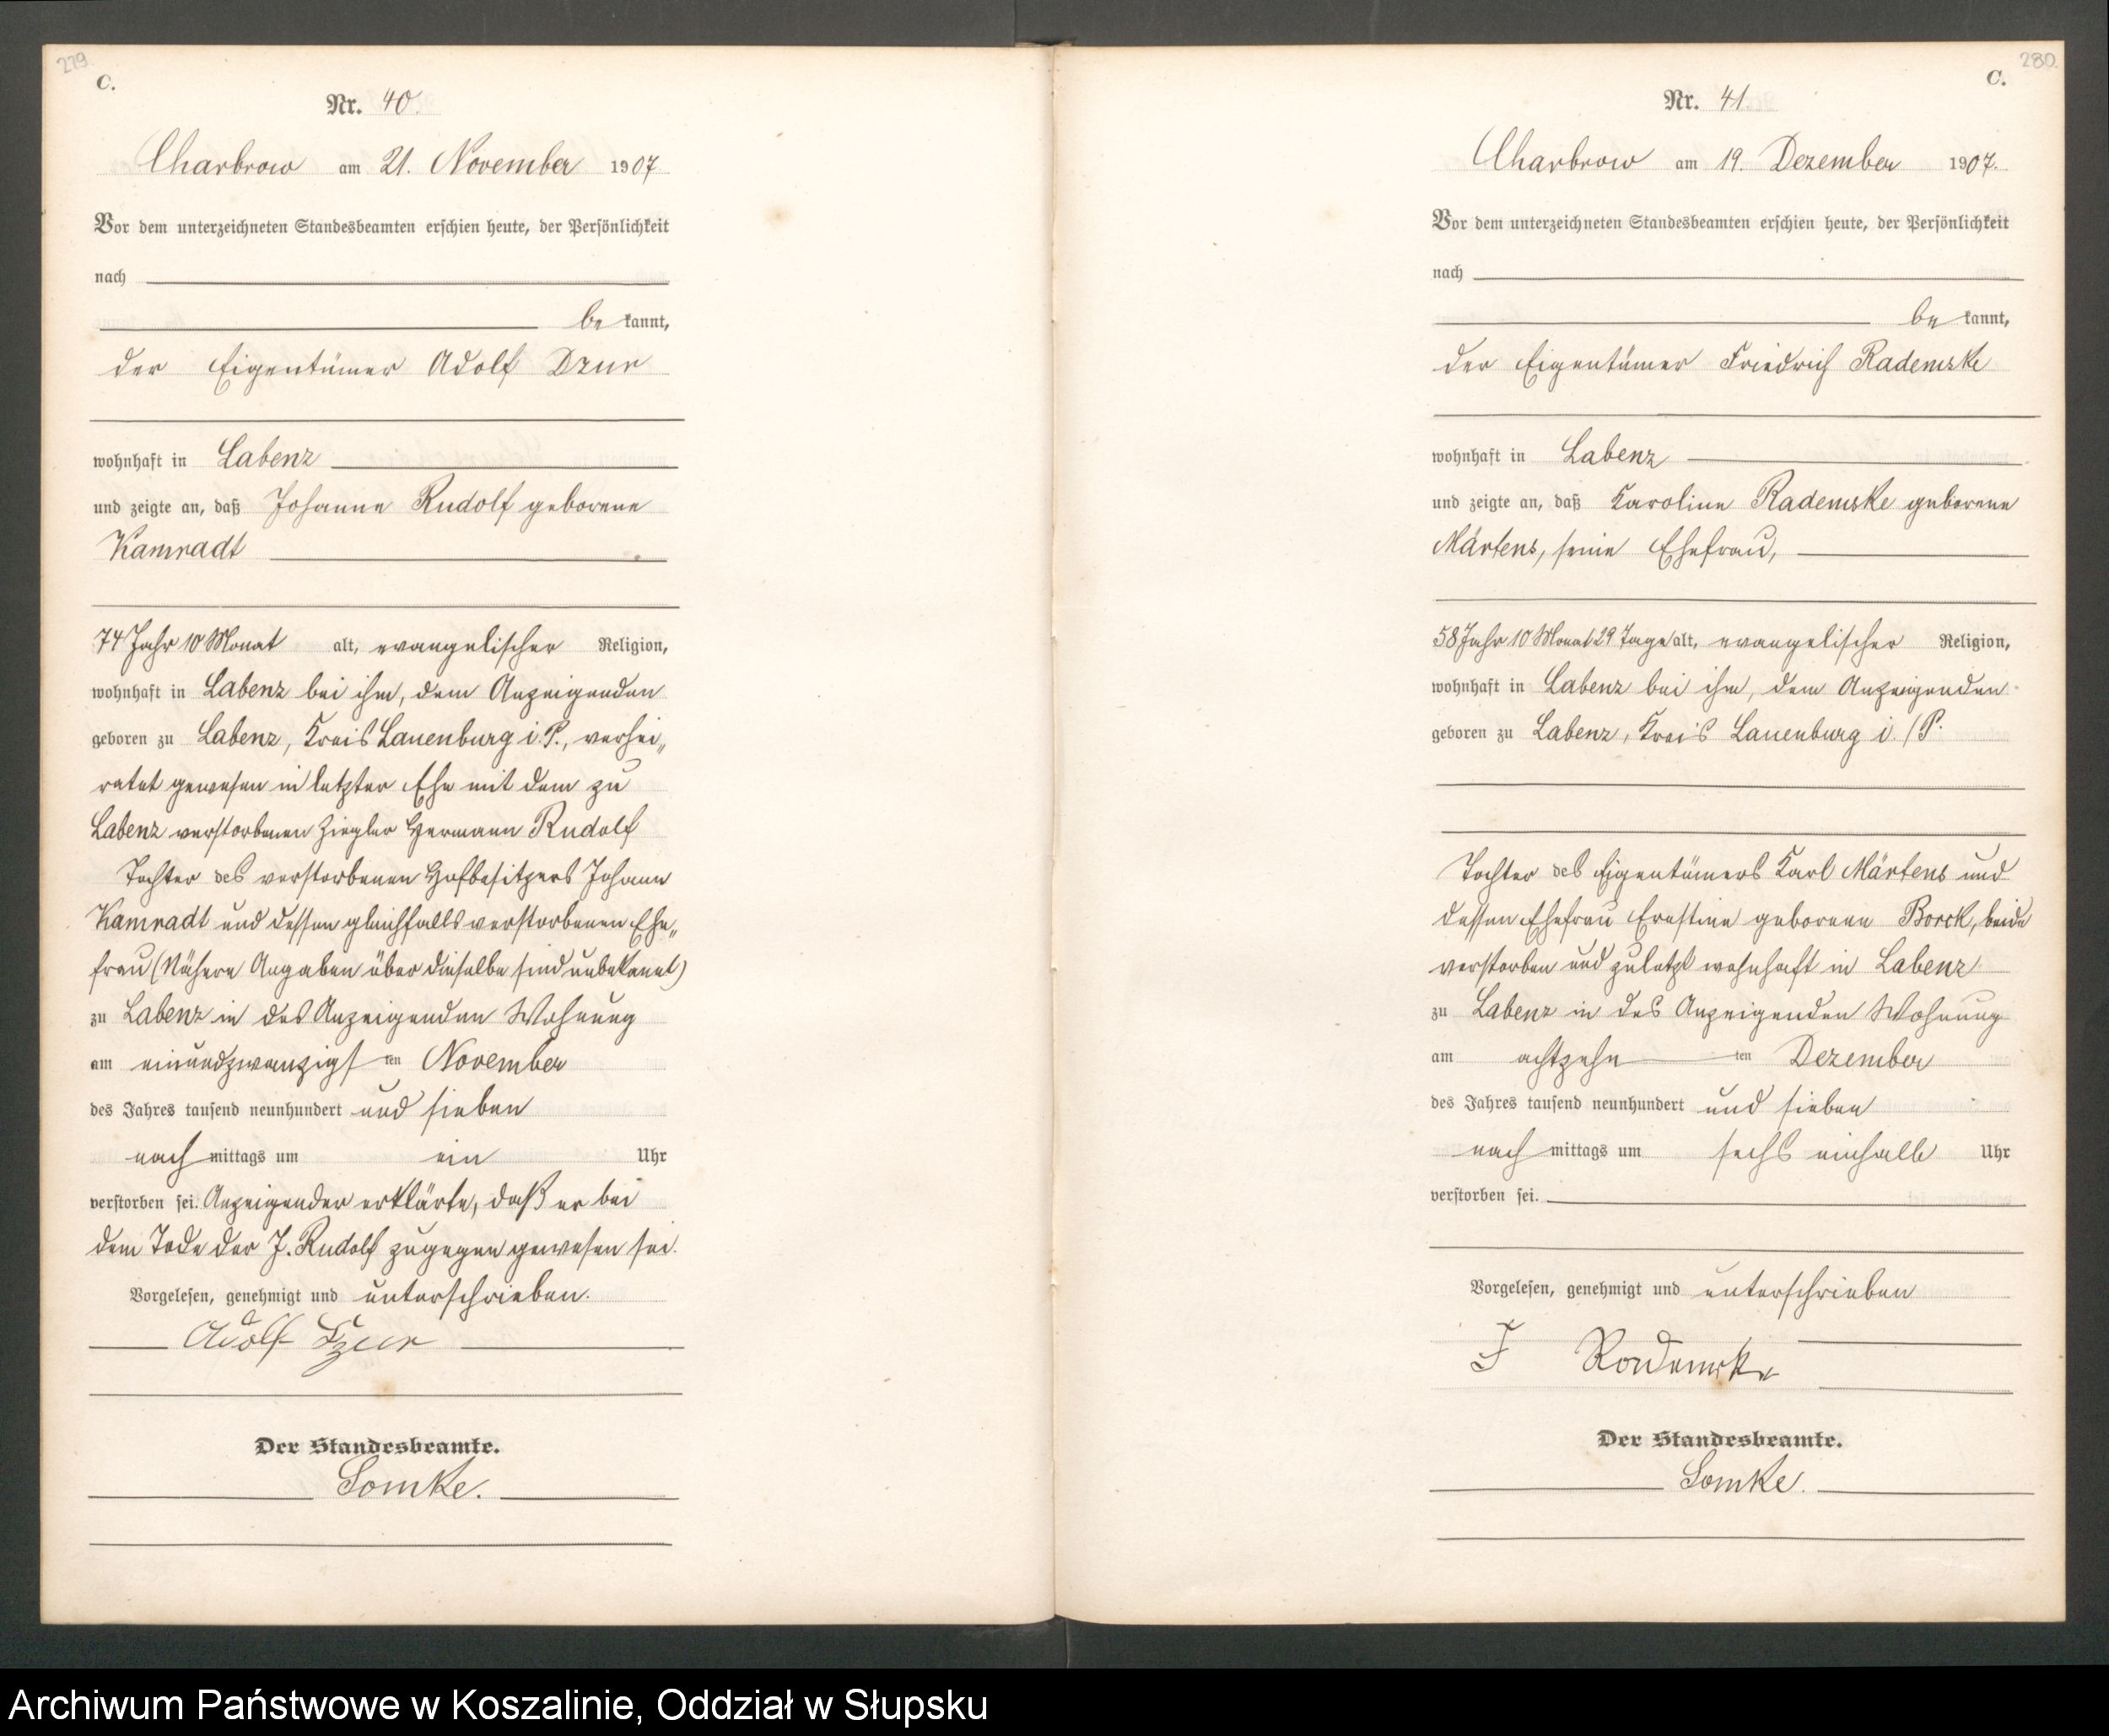 279.
C.
Nr. 40.
Charbrow am 21. November 1907
Vor dem unterzeichneten Standesbeamten erschien heute, der Persönlichkeit
nach
be kannt,
der Eigentümer Adolf Dzur
wohnhaft in Labenz
und zeigte an, daß Johanne Rudolf geborene
Kamradt
74 Jahr 10 Monat alt, evangelischer Religion,
wohnhaft in Labenz bei ihm, dem Anzeigenden
geboren zu Labenz, Kreis Lauenburg i. P., verhei„
ratet gewesen in letzter Ehe mit dem zu
Labenz verstorbenen Ziegler Hermann Rudolf
Tochter des verstorbenen Hofbesitzers Johann
Kamradt und dessen gleichfalls verstorbenen Ehe„
frau (Nähere Angaben über dieselbe sind unbekannt)
zu Labenz in des Anzeigenden Wohnung
am einundzwanzigsten November
des Jahres tausend neunhundert und sieben
nach mittags um ein Uhr
verstorben sei. Anzeigender erklärte, daß er bei
dem Tode der J. Rudolf zugegen gewesen sei.
Vorgelesen, genehmigt und unterschrieben.
Adolf Dzur
Der Standesbeamte.
Lomke.
280.
C.
Nr. 41.
Charbrow am 19. Dezember 1907.
Vor dem unterzeichneten Standesbeamten erschien heute, der Persönlichkeit
nach
be kannt,
der Eigentümer Friedrich Rademske
wohnhaft in Labenz
und zeigte an, daß Karoline Rademske geborene
Märtens, seine Ehefrau,
58 Jahr 10 Monat 29 Tage alt, evangelischer Religion,
wohnhaft in Labenz bei ihm, dem Anzeigenden
geboren zu Labenz, Kreis Lauenburg i./P.
Tochter des Eigentümers Karl Märtens und
dessen Ehefrau Ernstine geborene Borck, beide
verstorben und zuletzt wohnhaft in Labenz
zu Labenz in des Anzeigenden Wohnung
am achtzehn ten Dezember
des Jahres tausend neunhundert und sieben
nach mittags um sechs einhalb Uhr
verstorben sei.
Vorgelesen, genehmigt und unterschrieben
F Rademske
Der Standesbeamte.
Lomke.
Archiwum Państwowe w Koszalinie, Oddział w Słupsku